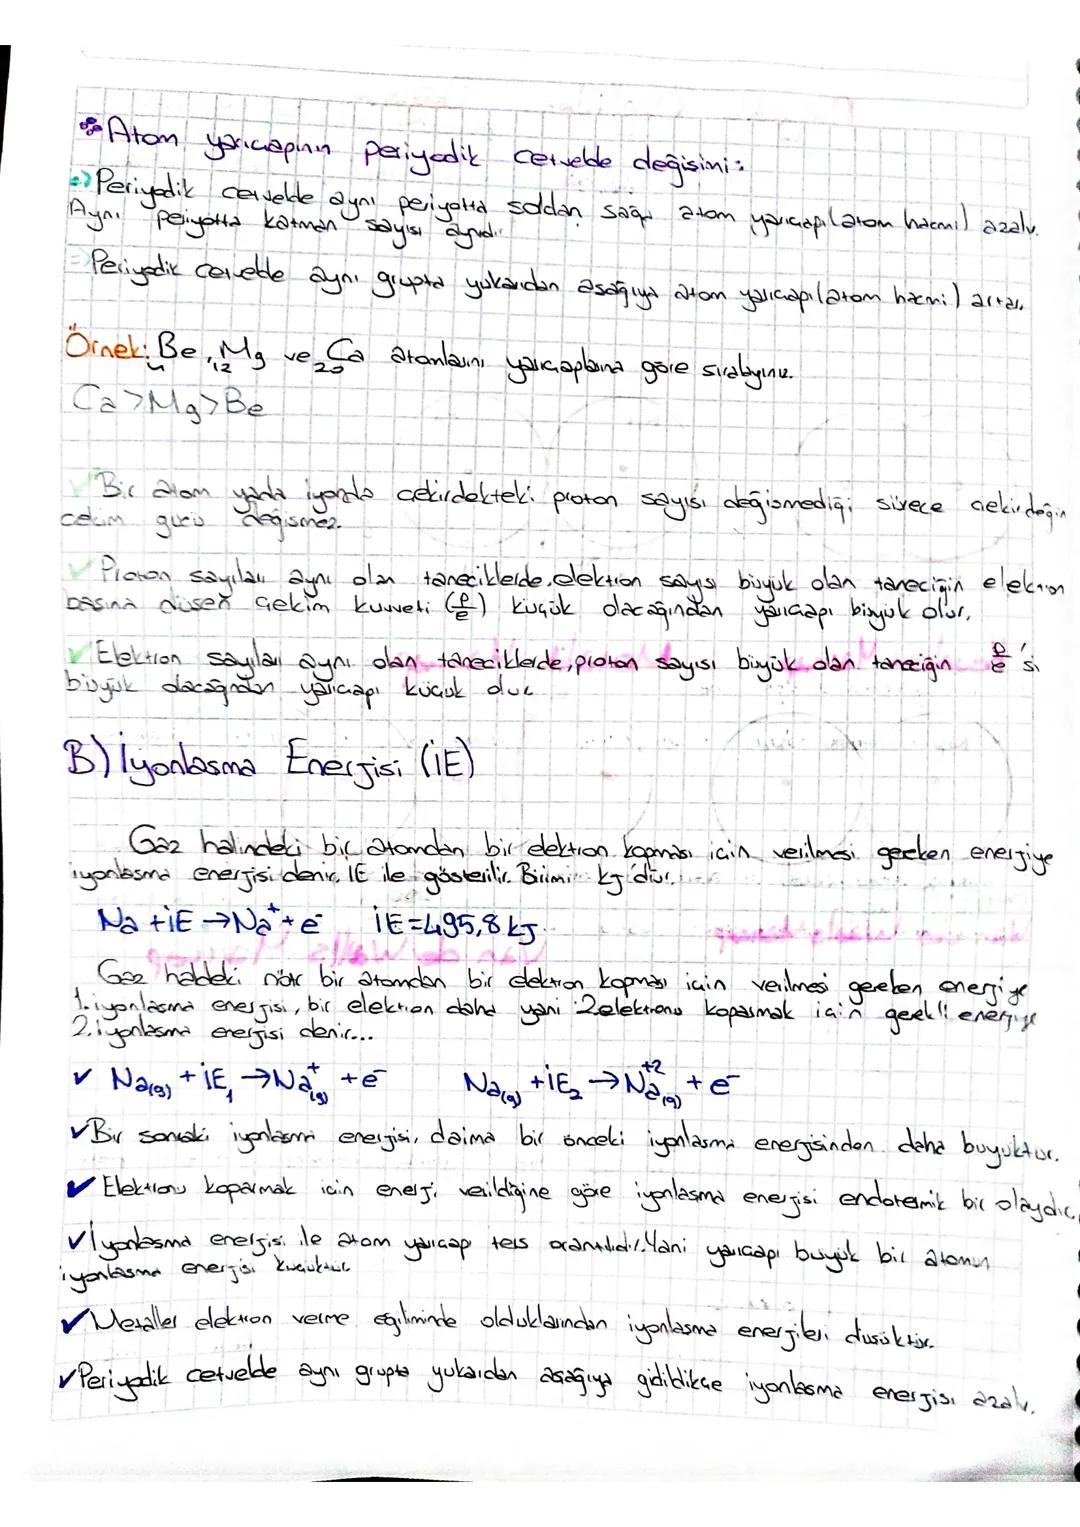 Atom yarıçapının periyodik cetvelde değişimi:
Periyodik cetvelde aynı periyotta soldan sağa atom yarıçapı (atom hacmi) azalır.
Aynı periyotta katman sayısı aynıdır.
Periyodik cetvelde aynı grupta yukarıdan aşağıya atom yarıçapı (atom hacmi) artar.
Örnek: ₄Be, ₁₂Mg ve ₂₀Ca atomlarını yarıçaplarına göre sıralayınız.
Ca>Mg>Be
Bir atom yada iyonda çekirdekteki proton sayısı değişmediği sürece çekirdeğin
çekim gücü değişmez.
Proton sayıları aynı olan taneciklerde, elektron sayısı büyük olan taneciğin elektron
başına düşen çekim kuvveti (p/e) küçük olacağından yarıçapı büyük olur.
Elektron sayıları aynı olan taneciklerde, proton sayısı büyük olan taneciğin p/e 'si
büyük olacağından yarıçapı küçük olur
B) İyonlaşma Enerjisi (İE)
Gaz halindeki bir atomdan bir elektron kopması için verilmesi gereken enerjiye
iyonlaşma enerjisi denir, IE ile gösterilir. Birimi kj'dür.
Na + İE → Na⁺ + e⁻ İE = 495,8 kJ
Gaz haldeki nötr bir atomdan bir elektron kopması için verilmesi gereken enerjiye
1. iyonlaşma enerjisi, bir elektron daha yani 2. elektronu koparmak için gerekli enerjiye
2. iyonlaşma enerjisi denir...
✓ Na(g) + İE₁ → Na⁺(g) + e⁻ Na(g) + İE₂ → Na⁺²(g) + e⁻
✓ Bir sonraki iyonlaşma enerjisi, daima bir önceki iyonlaşma enerjisinden daha büyüktür.
✓ Elektronu koparmak için enerji verildiğine göre iyonlaşma enerjisi endotermik bir olaydır.
✓ İyonlaşma enerjisi ile atom yarıçapı ters orantılıdır. Yani yarıçapı büyük bir atomun
iyonlaşma enerjisi küçüktür
✓ Metaller elektron verme eğiliminde olduklarından iyonlaşma enerjileri düşüktür.
✓ Periyodik cetvelde aynı grupta yukarıdan aşağıya gidildikçe iyonlaşma enerjisi azalır.